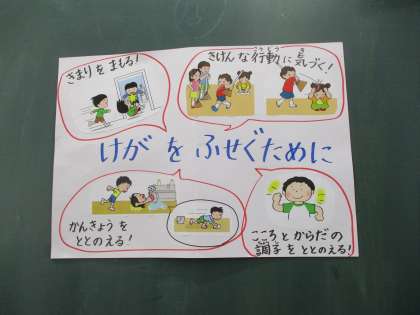 きまりを まもる!
きけんな行動に気づく!
こうどう
き
けが を ふせぐために
かんきょうを
ととのえる!
こころとからだの
調子をととのえる!